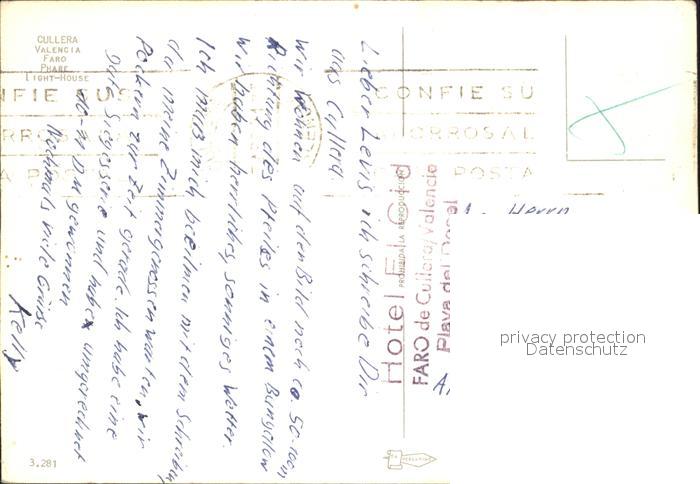 CULLERA
VALENCIA
FARO
PHARE
LIGHT-HOUSE
NFIE SUS
CONFIE SU
ORROSAL
A POSTA
POSTA
Lieber Levis ich schreibe Dir
aus Cullera
Wir wohnen auf den Bild noch ca. 50-100m
Richtung des Pfeiles in einem Bungalow
Wir haben herrliches, sonniges Wetter.
Ich muß mich beeilen mit dem Schreiben
da meine Zimmergenossen warten, wir
Pockern zur Zeit gerade. Ich habe eine
gute und habe umgerechnet
DM gewonnen
Nochmals viele Grüße
Kelly
Hotel El Cid
FARO de Cullera/Valencia
Playa del Dosel
PROHIBIDA LA REPRODUCCION
Herrn
A.
privacy protection
Datenschutz
3.281